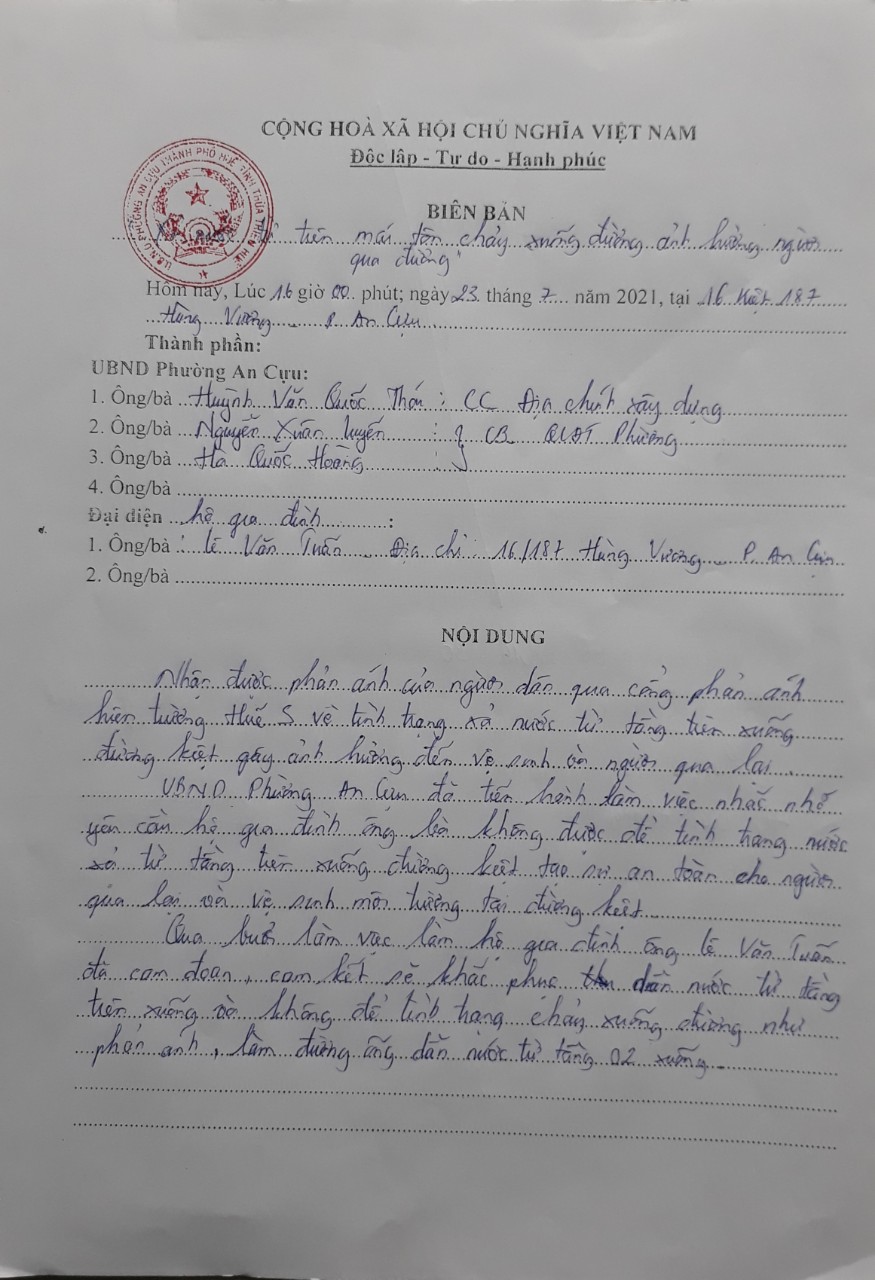 CỘNG HOÀ XÃ HỘI CHỦ NGHĨA VIỆT NAM
Độc lập - Tự do - Hạnh phúc
U.B.N.D PHƯỜNG AN CỰU THÀNH PHỐ HUẾ TỈNH THỪA THIÊN HUẾ
BIÊN BẢN
từ trên mái tôn chảy xuống đường ảnh hưởng người
qua đường"
Hôm nay, Lúc 16 giờ 00 phút; ngày 23 tháng 7 năm 2021, tại 16 Kiệt 187
Hùng Vương P. An Cựu
Thành phần:
UBND Phường An Cựu:
1. Ông/bà Huỳnh Văn Quốc : CC Địa chính xây dựng
2. Ông/bà Nguyễn Xuân : CB QLĐT Phường
3. Ông/bà Hà Quốc Hoàng :
4. Ông/bà
Đại diện hộ gia đình :
1. Ông/bà : Lê Văn Tuấn Địa chỉ : 16/187 Hùng Vương P. An Cựu
2. Ông/bà
NỘI DUNG
Nhận được phản ánh của người dân qua cổng phản ánh
hiện tượng Huế S về tình trạng xả nước từ tầng trên xuống
đường kiệt gây ảnh hưởng đến vệ sinh và người qua lại.
UBND Phường An Cựu đã tiến hành làm việc nhắc nhở
yêu cầu hộ gia đình ông là không được để tình trạng nước
xả từ tầng trên xuống đường kiệt tạo sự an toàn cho người
qua lại và vệ sinh môi trường tại đường kiệt
Qua buổi làm việc làm hộ gia đình ông Lê Văn Tuấn
đã cam đoan, cam kết sẽ khắc phục dẫn nước từ tầng
trên xuống và không để tình trạng chảy xuống đường như
phản ánh, làm đường ống dẫn nước từ tầng 02 xuống.